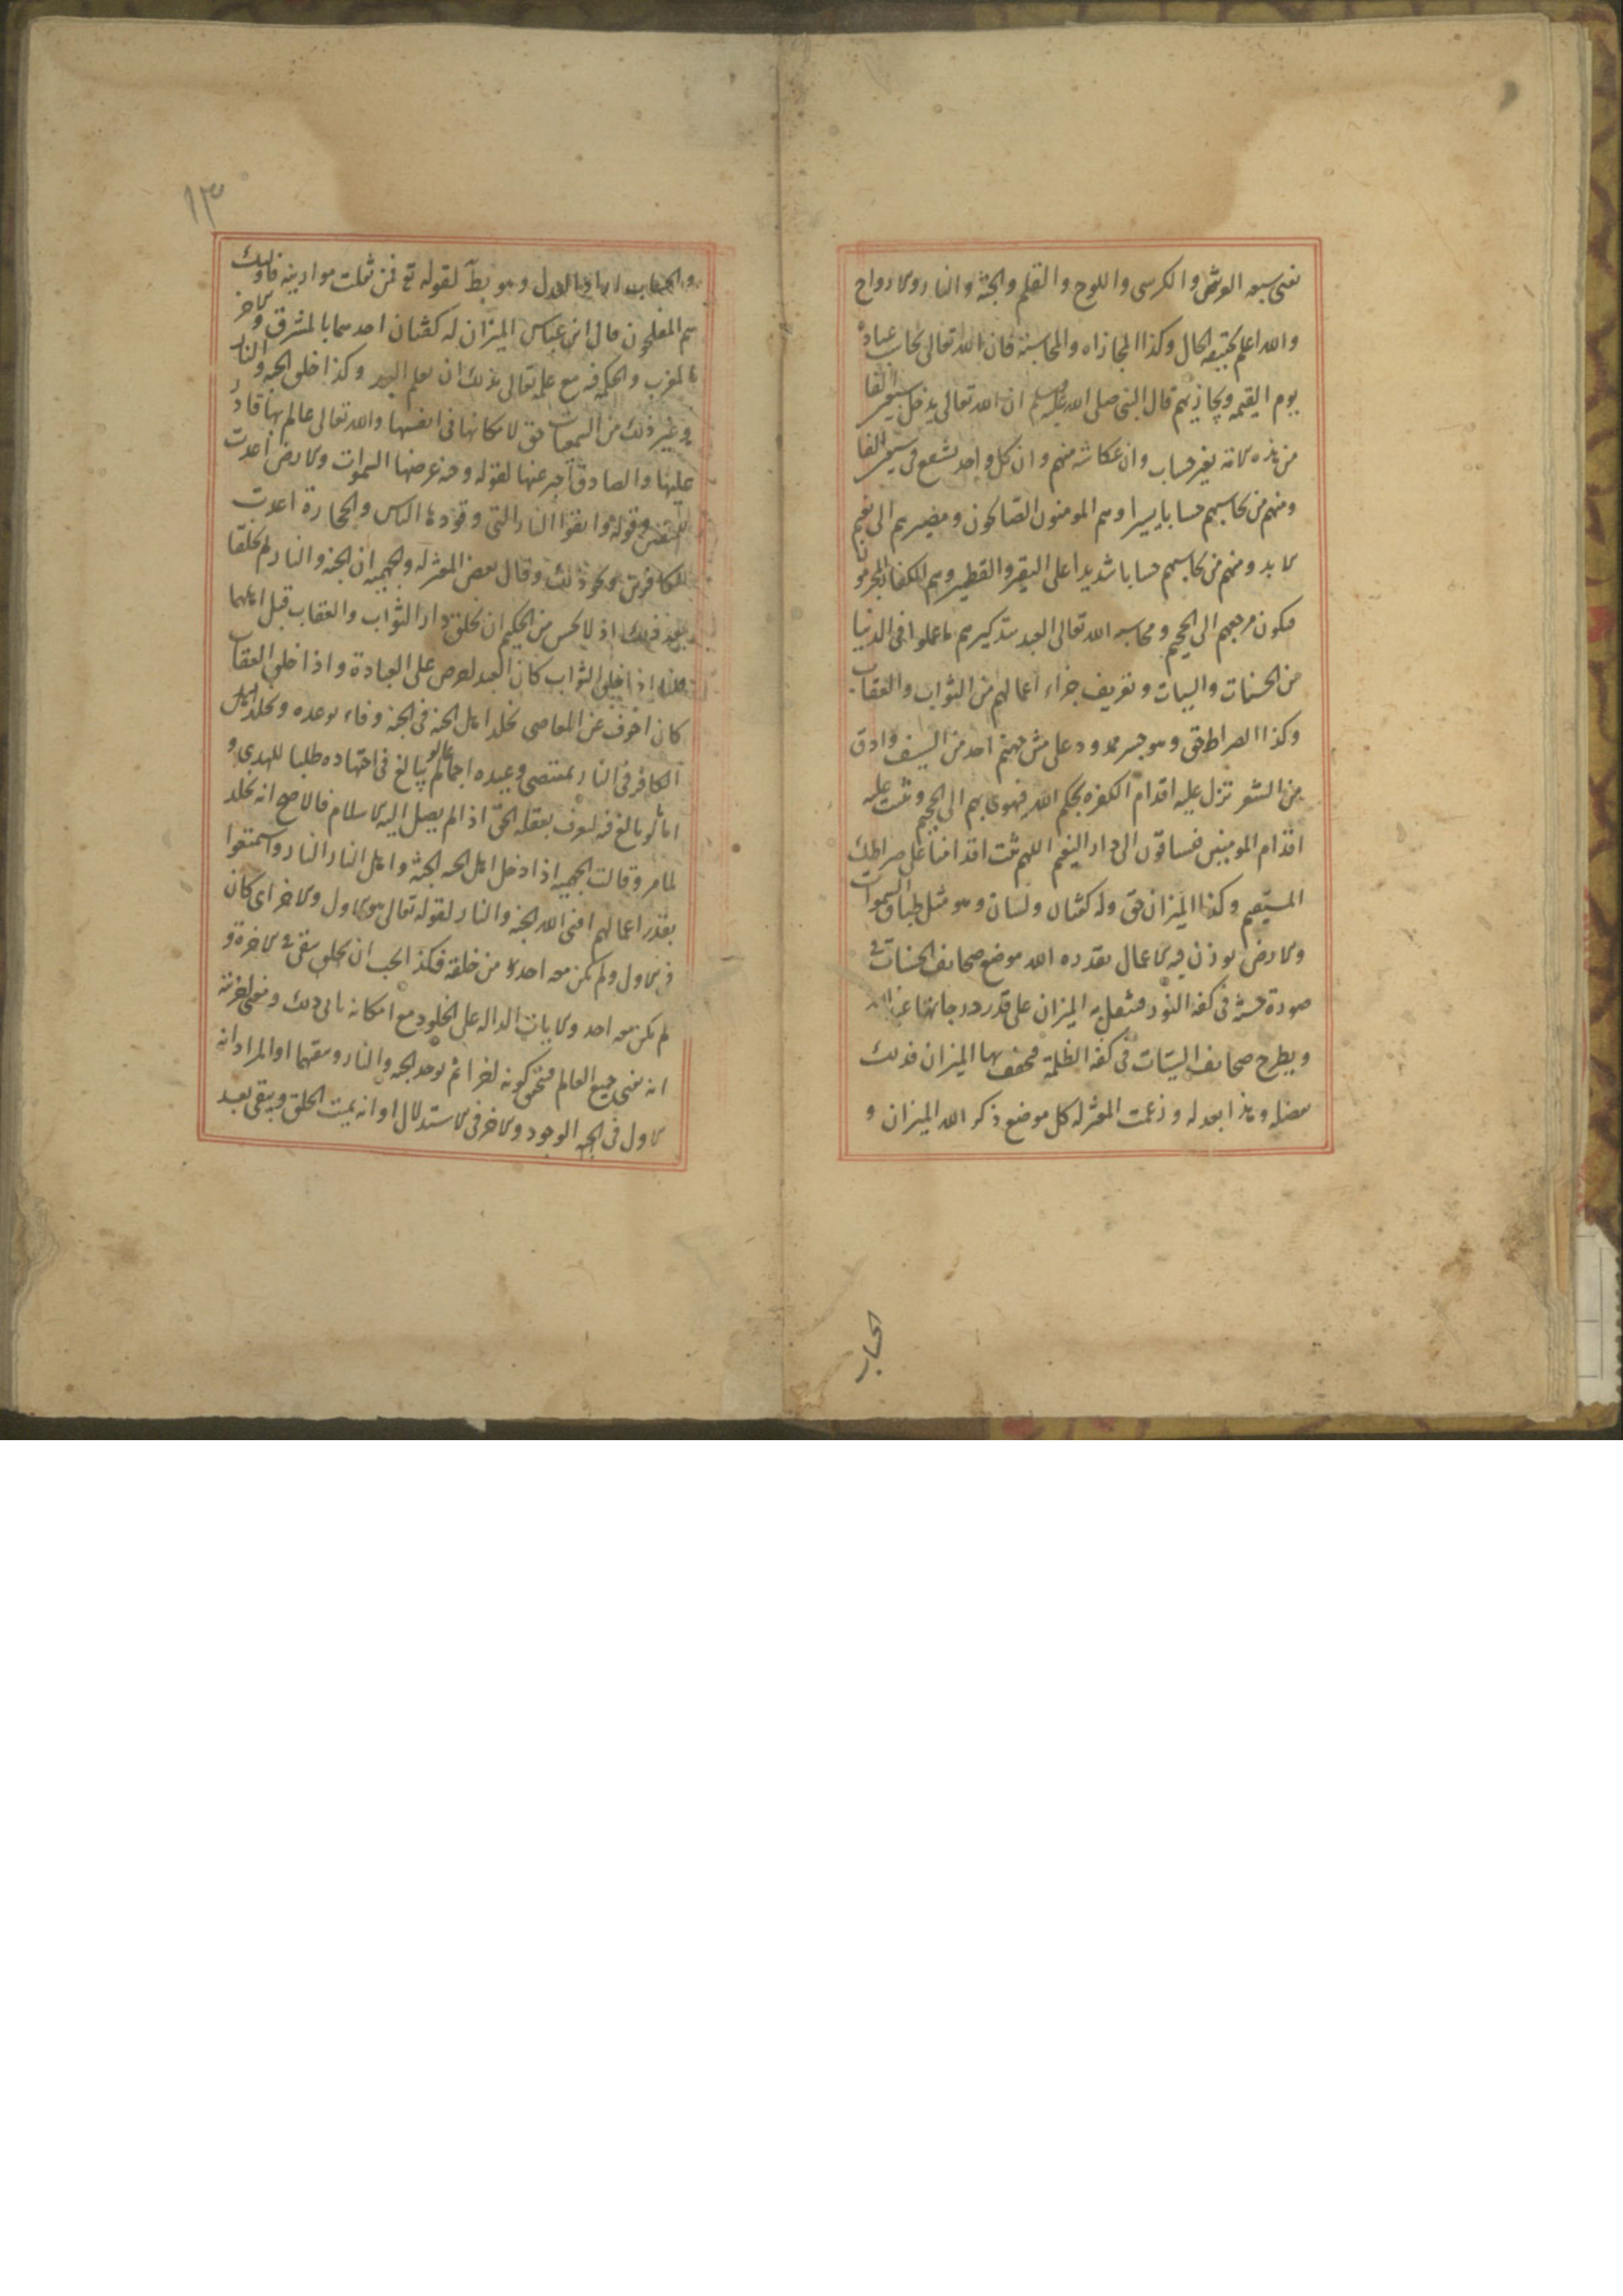 يفنى سبعه العرش والكرسى واللوح والقلم والجنة والنار والارواح
والله اعلم بحقيقه الحال وكذا المجازاه والمحاسبة فان الله تعالى يحاسب عباده
يوم القيمه ويجازيهم قال النبى صلى الله عليه وسلم ان الله تعالى يدخل سبعين الفا
من هذه الامة بغير حساب وان عكاشه منهم وان كل واحد يشفع فى سبعين الفا
ومنهم من يحاسبهم حسابا يسيرا وهم المومنون الصالحون ومصيرهم الى نعيم
الابد ومنهم من يحاسبهم حسابا شديدا على النقير والقطمير وهم الكفار المجرمون
فيكون مرجعهم الى الجحيم ومحاسبه الله تعالى العبد بتذكيرهم ما عملوا فى الدنيا
من الحسنات والسيات وتعريف جزاء اعمالهم من الثواب والعقاب
وكذا الصراط حق وهو جسر ممدود على متن جهنم احد من السيف وادق
من الشعر تزل عليه اقدام الكفره بحكم الله فيهوى بهم الى الجحيم وتثبت عليه
اقدام المومنين فيساقون الى دار النعيم اللهم ثبت اقدامنا على صراطك
المستقيم وكذا الميزان حق وله كفتان ولسان وهو مثل طباق السموات
والارض يوزن فيه الاعمال بقدره الله موضع صحايف الحسنات فى
صورة حسنة فى كفة النور فيثقل به الميزان على قدر درجاتها عند الله
ويطرح صحايف السيئات فى كفة الظلمة فيخف بها الميزان فذلك
بفضله وهذا بعدله وزعمت المعتزله كل موضع ذكر الله الميزان و
الحساب
١٣
والحساب اراد العدل وهو بط لقوله تع فمن ثقلت موازينه فاولئك
هم المفلحون قال ابن عباس الميزان له كفتان احدهما بالمشرق والاخر
بالمغرب والحكمه فيه مع علمه تعالى بذلك ان يعلم العبد وكذا خلق الجنه والنار
وغير ذلك من السمعيات حق لامكانها فى انفسها والله تعالى عالم بها قادر
عليها والصادق اخبر عنها لقوله وجنه عرضها السموات والارض اعدت
للمتقين وقوله واتقوا النار التى وقودها الناس والحجارة اعدت
للكافرين ونحو ذلك وقال بعض المعتزله والجهميه ان الجنه والنار لم تخلقا
بعد اذ لا يحسن من الحكيم ان يخلق دار الثواب والعقاب قبل اهلهما
قلنا اذا خلق الثواب كان العبد احرص على العبادة واذا خلق العقاب
كان اخوف عن المعاصى يخلد اهل الجنه فى الجنة وفاء بوعده ويخلد
الكافر فى النار بمقتضى وعيده اجماعا لو لم يبالغ فى اجتهاده طلبا للهدى و
اما لو بالغ فيه ليعرف بعقله الحق اذا لم يصل اليه الاسلام فالاصح انه يخلد
لما مر وقالت الجهميه اذا دخل اهل الجنه الجنة واهل النار النار واستمتعوا
بقدر اعمالهم افنى الله الجنه والنار لقوله تعالى هو الاول والاخر اى كان
فى الاول ولم يكن معه احد من خلقه فكذا يجب ان يبقى فى الاخرة و
لم يكن معه احد والايات الداله على الخلود مع امكانه ينافى ذلك ومعنى اخريته
انه يفنى جميع العالم فيتحقق كونه اخرا ثم يوجد الجنه والنار ويبقيهما او المراد انه
الاول فى الوجود والاخر فى الاستدلال او انه يميت الخلق ويبقى بعد